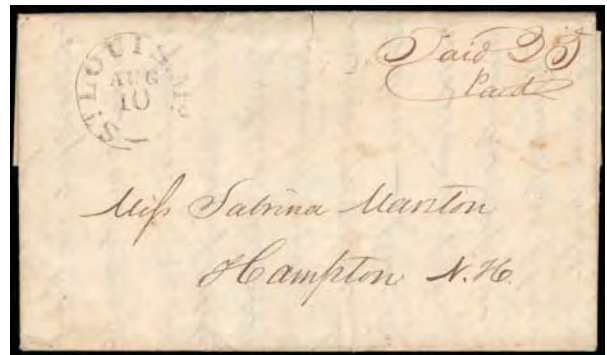 ST. LOUIS Mo.
AUG
10
Paid 25
Paid
Miss Sabrina Marston
Hampton N. H.